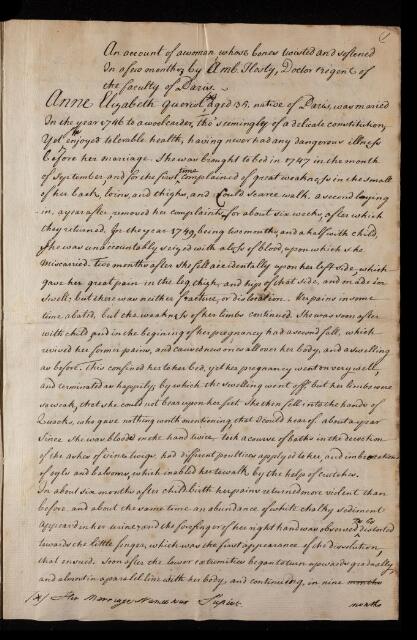 An account of a woman whose bones twisted and softened
In a few months, by Amb. Hosty, Doctor regent of
the faculty of Paris.
Anne Elizabeth queriot, aged 35, native of Paris, was maried
In the year 1746 to a woolcarder, tho' seemingly of a delicate constitution,
Yet enjoyed tolerable health, having never had any dangerous illness
before her marriage. She was brought to bed in 1747 in the month
of September and for the first time complained of great weakness in the small
of her back, loins, and thighs, and Could scarce walk. a second laying
in, a year after, removed her complaints, for about six weeks, after which
they returned. In the year 1749, being two months, and a half with child,
She was unaccountably seized with a loss of blood, upon which she
miscarried. Two months after she fell accidentally upon her left side, which
gave her great pain in the leg, thigh, and hip of that side, and made 'em
swell; but there was neither fracture, or dislocation. her pains in some
time abated, but the weakness of her limbs continued. She was soon after
with child, and in the begining of her pregnancy had a second fall, which
revived her former pains, and caused new ones all over her body, and a swelling
as before. This confined her to her bed, yet her pregnancy went on very well,
and terminated as happily; by which the swelling went off, but her limbs were
so weak, that she could not bear upon her feet. She then fell into the hands of
Quacks, who gave nothing worth mentioning, that I could hear of. about a year
Since She was blooded in the hand twice, took a course of baths in the decoction
of the ashes of vine twigs, had different poultices applyed to her, and imbrocations
of oyls and balsoms, which enabled her to walk by the help of crutches.
In about six months after child birth her pains returned more violent than
before, and about the same time an abundance of white chalky sediment
appeared in her urine, and the forefinger of her right hand was observed to be distorted
towards the little finger, which was the first appearance of the dissolution,
that ensued. Soon after the lower extremities began to turn upwards gradually,
and almost in a paralel line with her body, and continuing, in nine months
(x) Her Marriage Name was Supiot. months